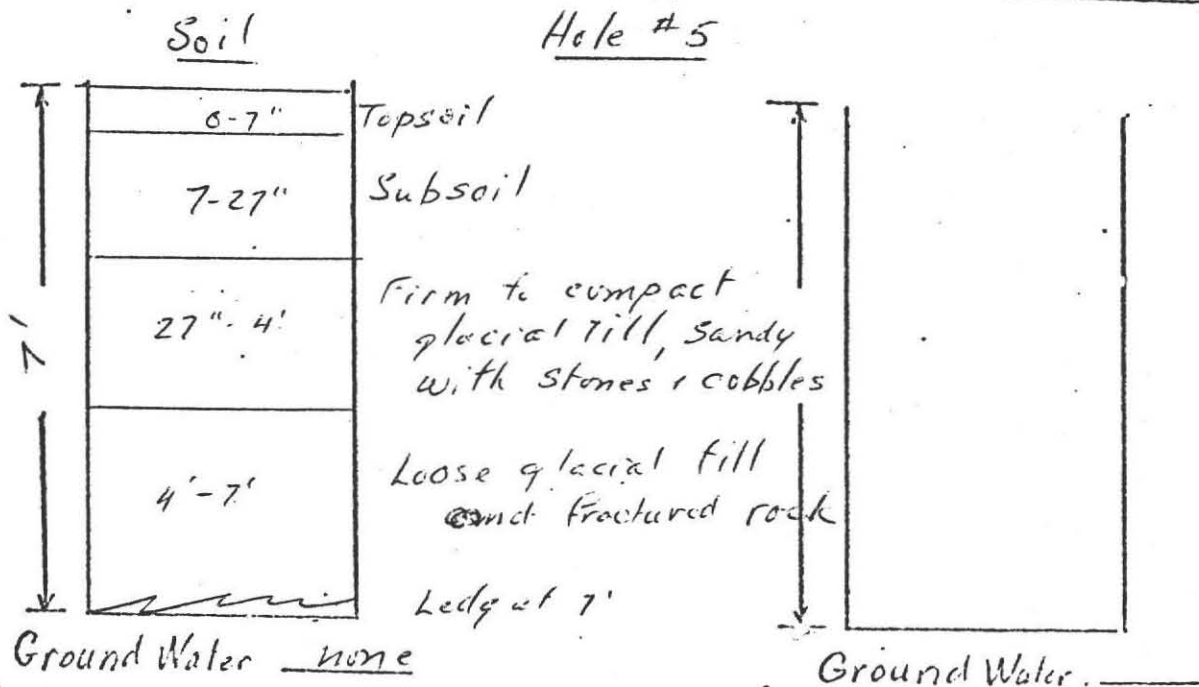 Soil
Hole #5
0-7" Topsoil
7-27" Subsoil
27"-4' Firm to compact
glacial till, sandy
with stones & cobbles
7'
4'-7' Loose glacial till
and fractured rock
Ledge at 7'
Ground Water none
Ground Water